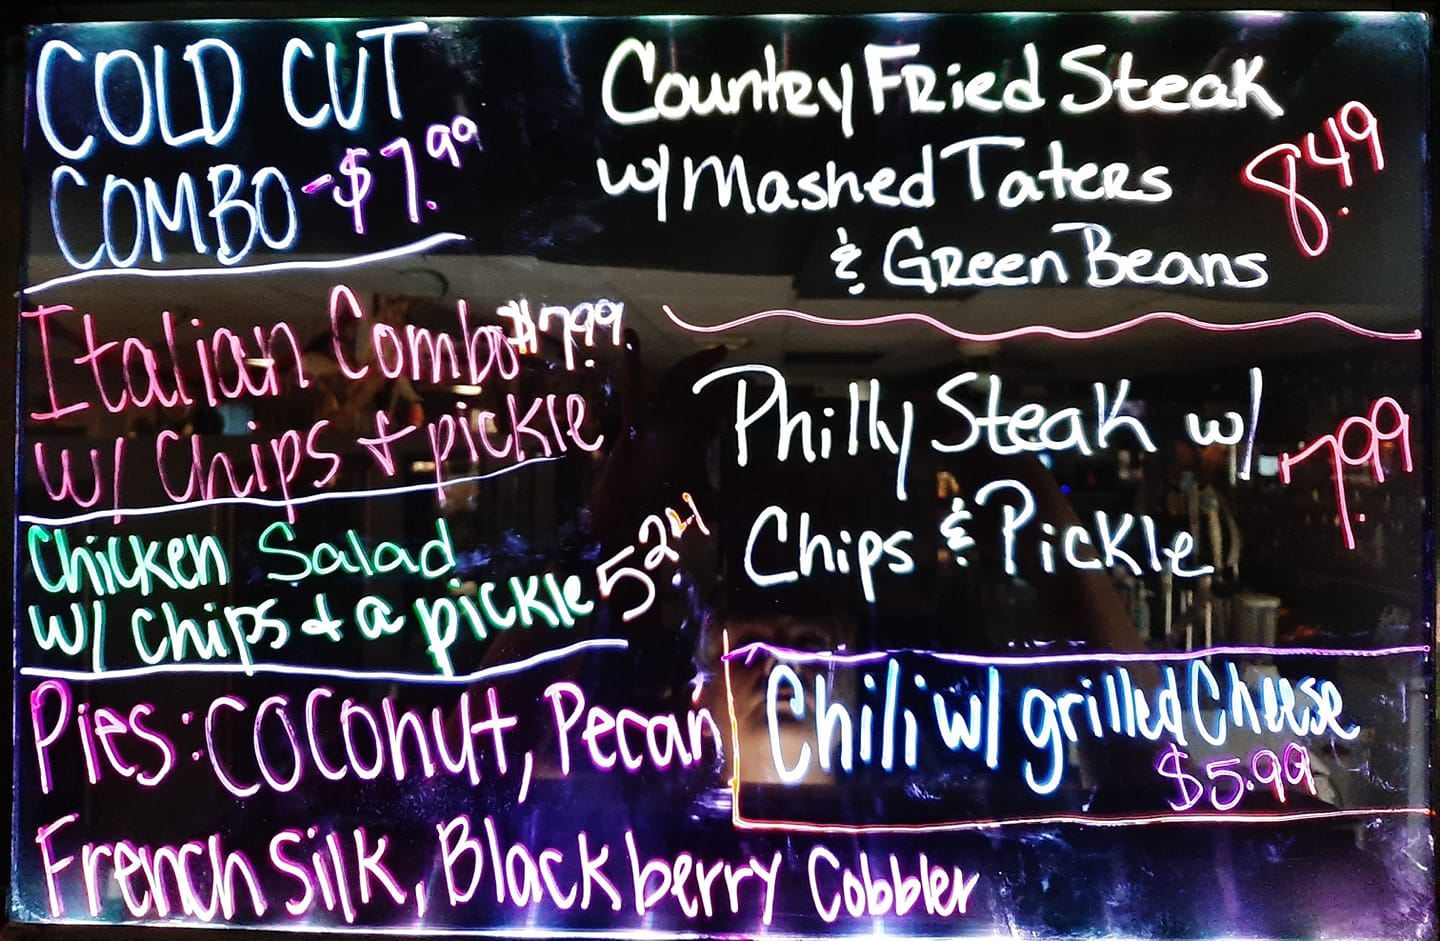 COLD CUT
COMBO - $7.99
Italian Combo $7.99
w/ Chips & pickle
Chicken Salad
w/ Chips & a pickle
Pies: Coconut, Pecan
French Silk, Blackberry Cobbler
Country Fried Steak
w/ Mashed Taters 8.49
& Green Beans
Philly Steak w/ 7.99
Chips & Pickle
Chili w/ grilled Cheese
$5.99